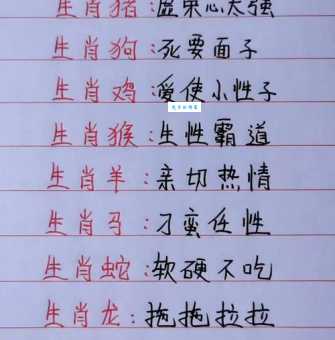 生肖猪:虚荣心太强
生肖狗:死要面子
生肖鸡:爱使小性子
生肖猴:生性霸道
生肖羊:亲切热情
生肖马:刁蛮任性
生肖蛇:软硬不吃
生肖龙:拖拖拉拉